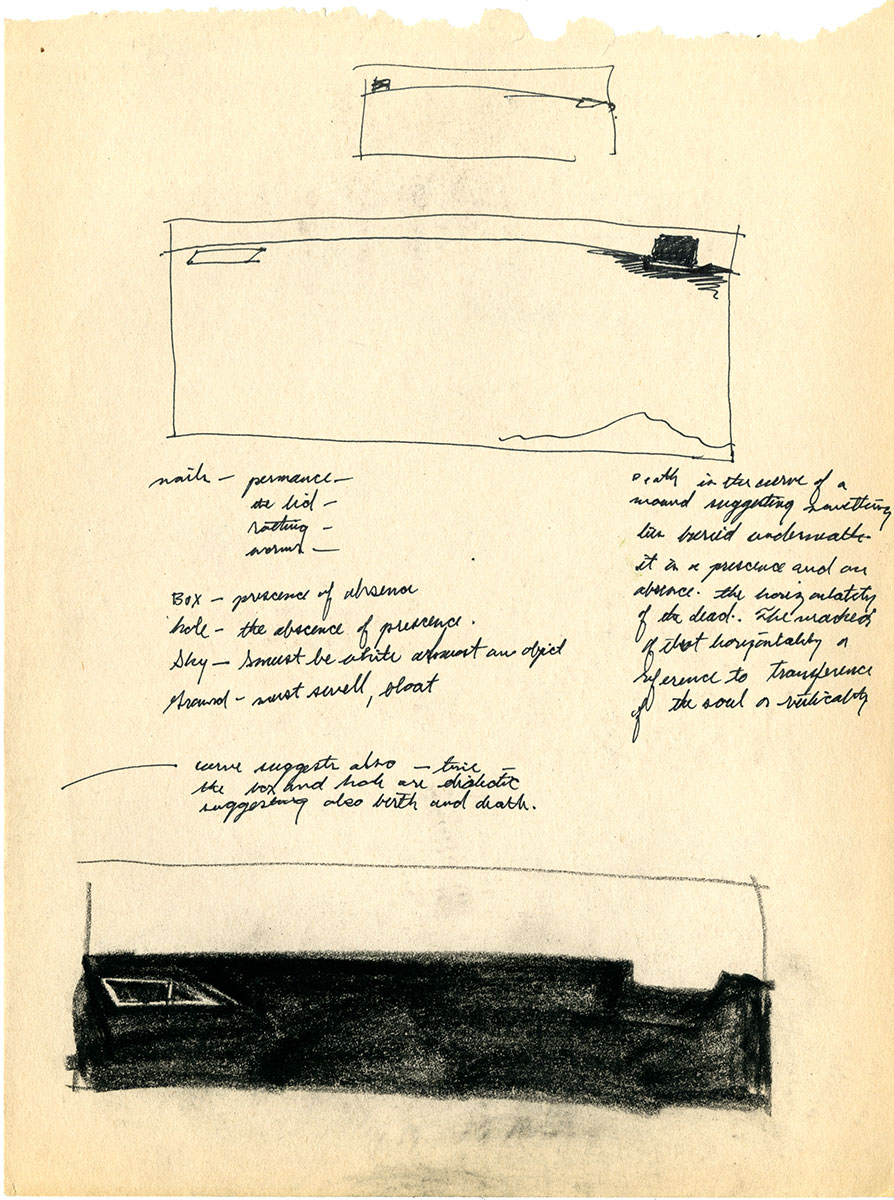 nails — permance —
the lid —
rotting —
worms —
Box — prescence of absence
hole — the abscence of prescence.
Sky — must be white almost an object
Ground — must swell, bloat
curve suggests also — time —
the box and hole are dialectic
suggesting also birth and death.
Death in the curve of a
mound suggesting something
lies buried underneath
it is a prescence and an
absence. the horizontality
of the dead. The
of that horizontality a
reference to transference
of the soul or verticality